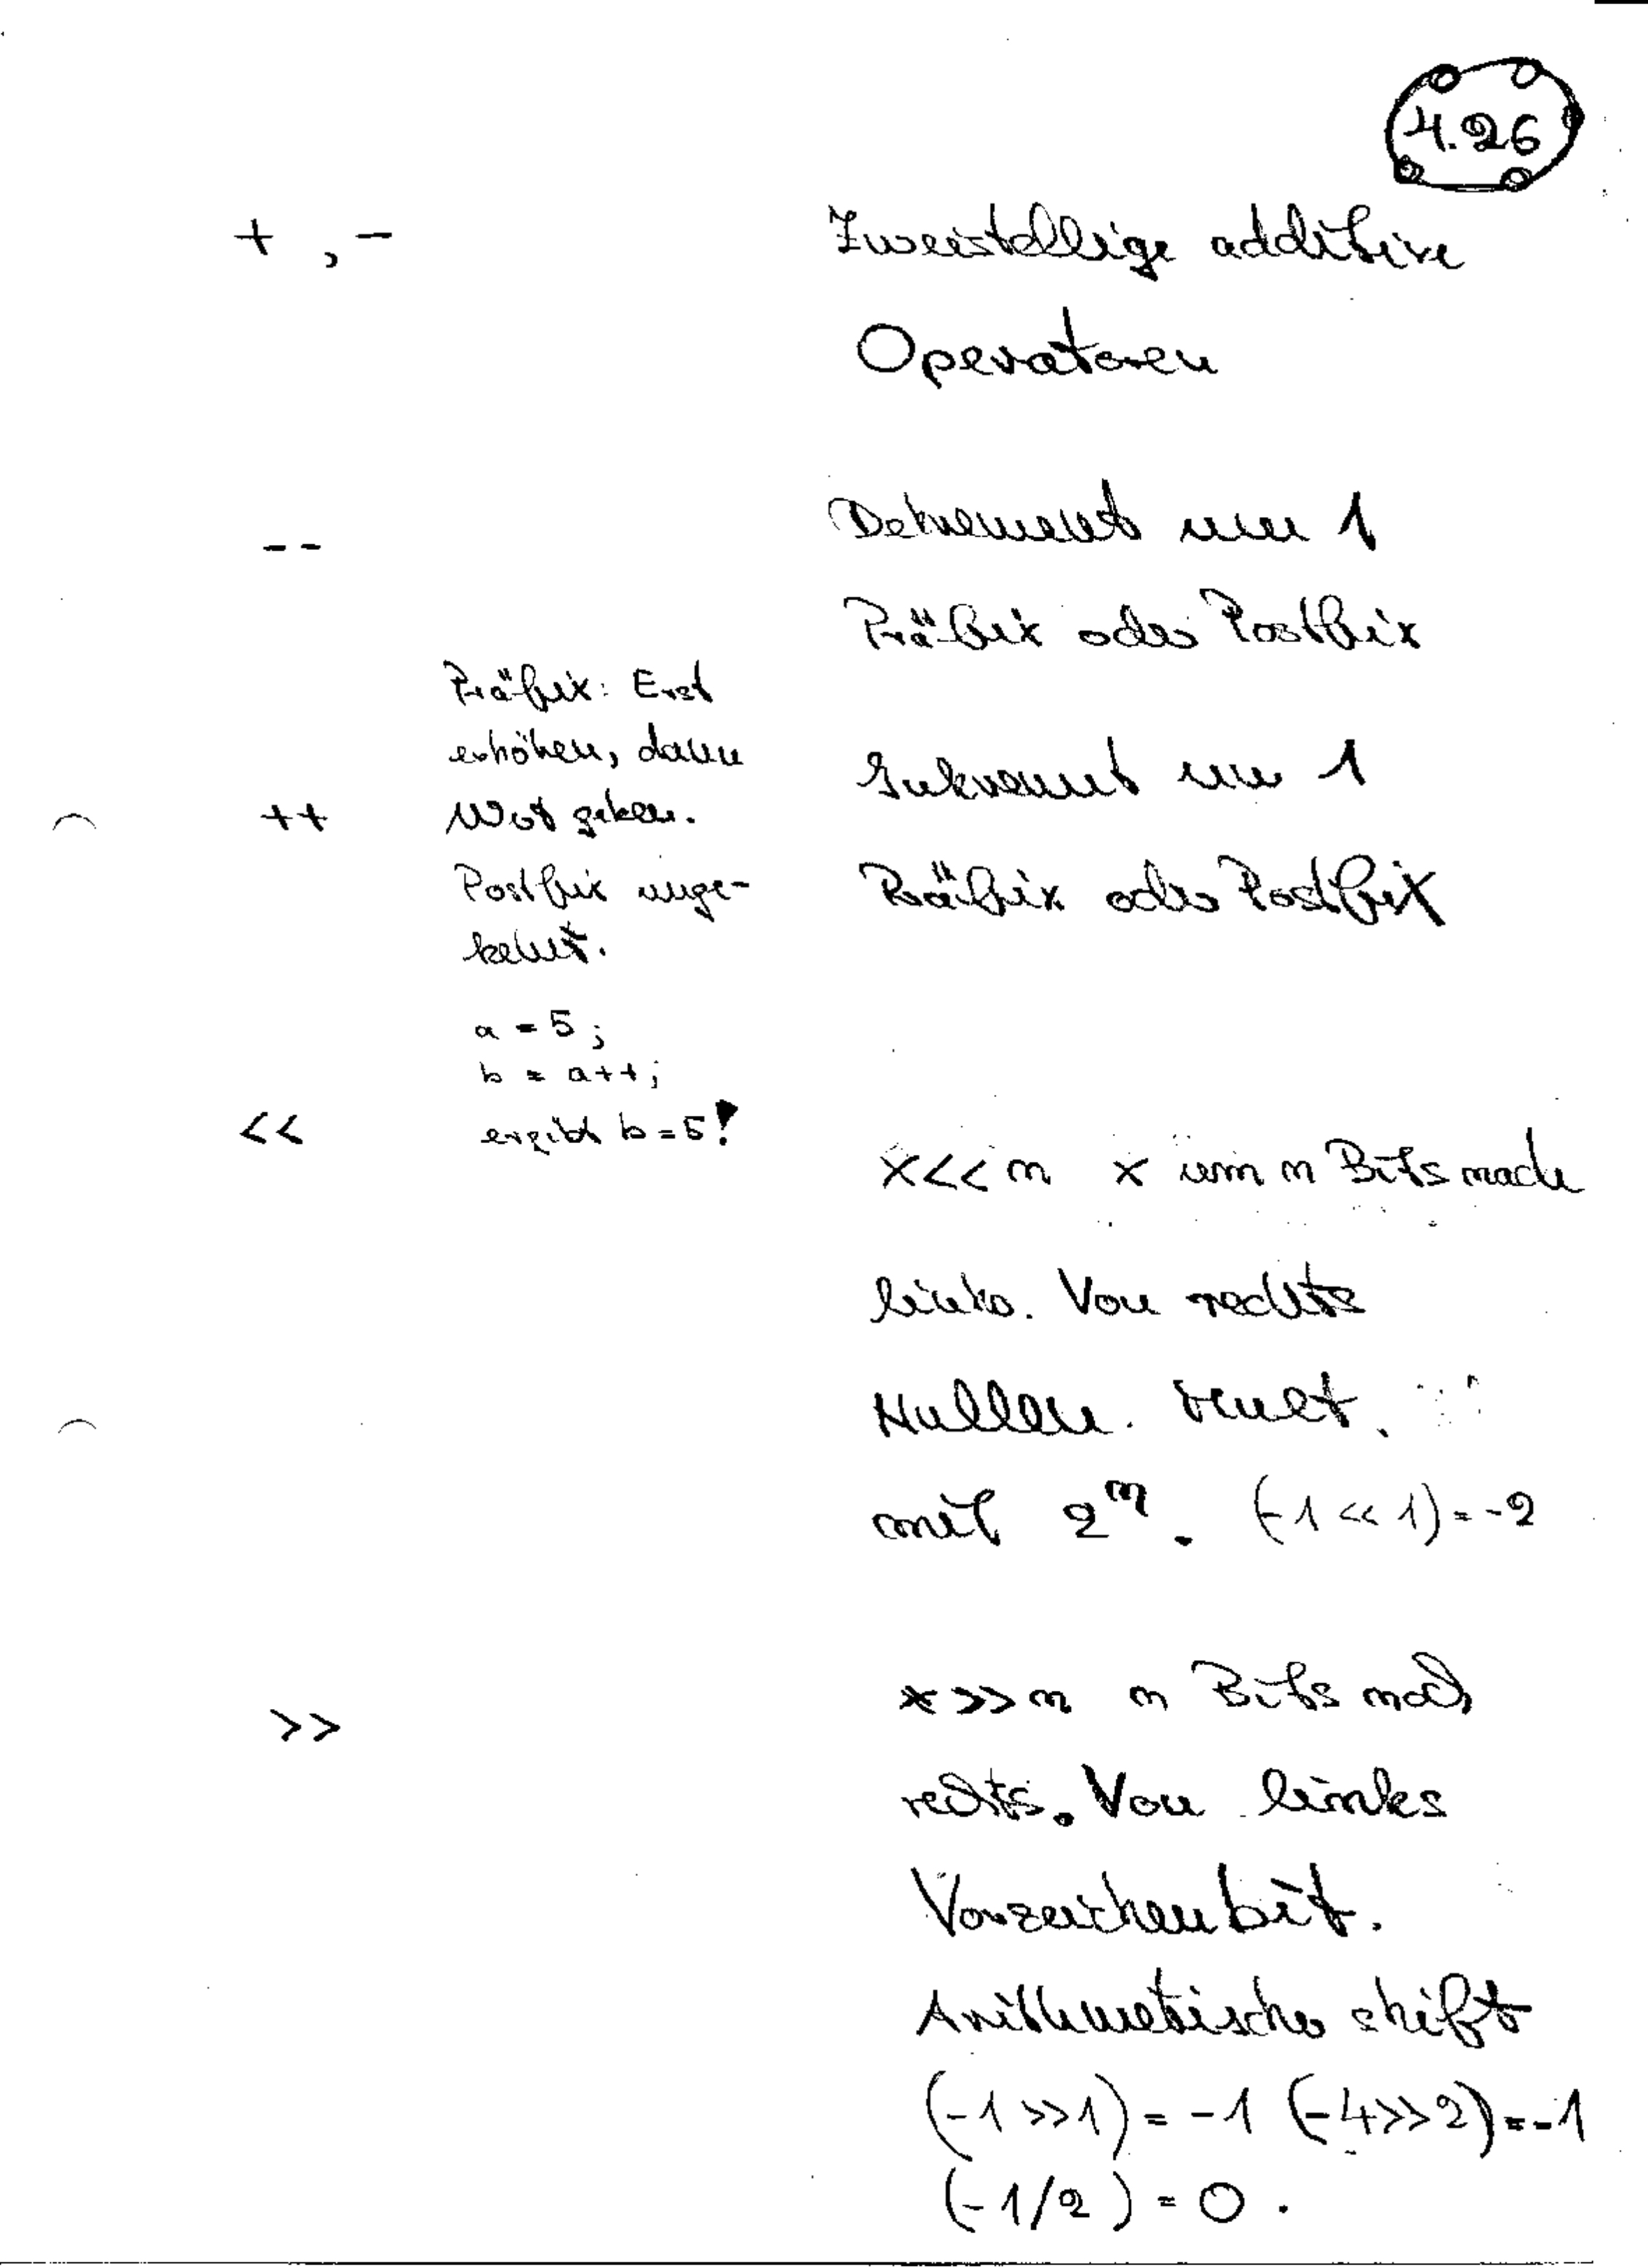 4.26
+ , -
Zweistellige additive
Operatoren
--
Dekrement um 1
Präfix oder Postfix
Präfix: Erst
erhöhen, dann
Wert geben.
Postfix umge-
kehrt.
a = 5;
b = a++;
ergibt b=5!
++
Inkrement um 1
Präfix oder Postfix
<<
x<<n x um n Bits nach
links. Von rechts
Nullen. Mult.
mit 2^n. (-1 << 1) = -2
>>
x>>n n Bits nach
rechts. Von links
Vorzeichenbit.
Arithmetischer shift
(-1 >>1) = -1 (-4>>2) = -1
(-1/2) = 0.